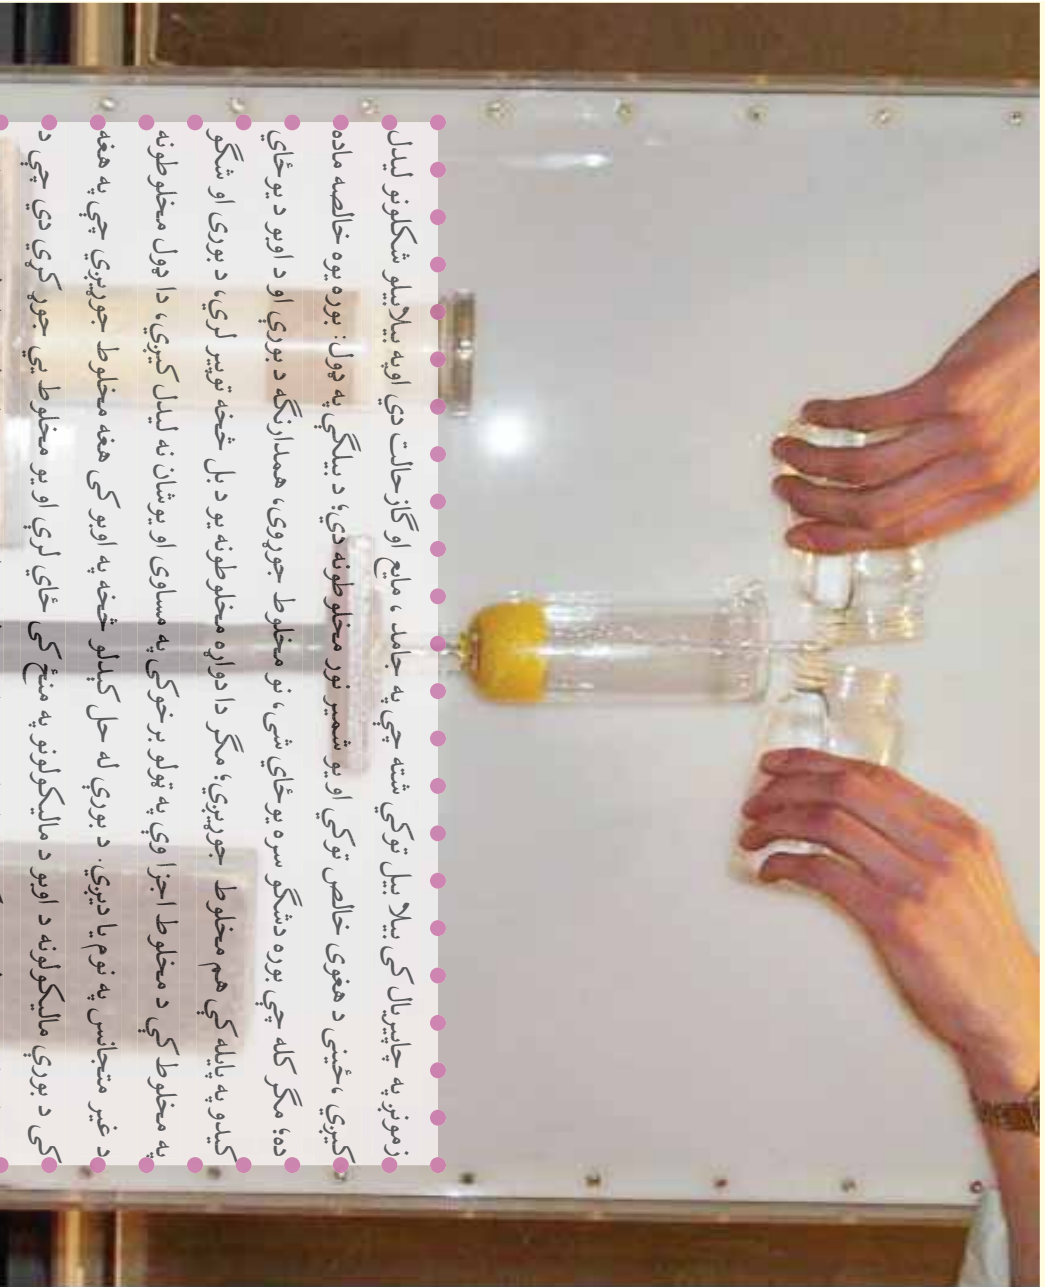 زمونږ په چاپيريال کی بيلا بيل توکي شته چي په جامد ، مايع او گاز حالت دي اوپه بيلابيلو شکلونو ليدل
کيږي ،ځينی د هغوی خالص توکي او يو شمير نور مخلوطونه دي؛ د بيلگي په ډول: بوره يوه خالصه ماده
ده؛ مگر کله چي بوره دشگو سره يوځای شی، نو مخلوط جوړوی، همدارنگه د بوري او د اوبو د يوځاي
کيدو په پايله کي هم مخلوط جوړيږي؛ مگر دا دواړه مخلوطونه يو د بل څخه توپير لري، د بوری او شگو
په مخلوط کي د مخلوط اجزا وي په ټولو برخوکي په مساوی او يوشان نه ليدل کيږي، دا ډول مخلوطونه
د غير متجانس په نوم يا ديږي. د بوري له حل کيدلو څخه په اوبو کی هغه مخلوط جوړيږي چي په هغه
کی د بوري ماليکولونه د اوبو د ماليکولونو په منځ کی ځای لري او يو مخلوط يي جوړ کړي دي چي د